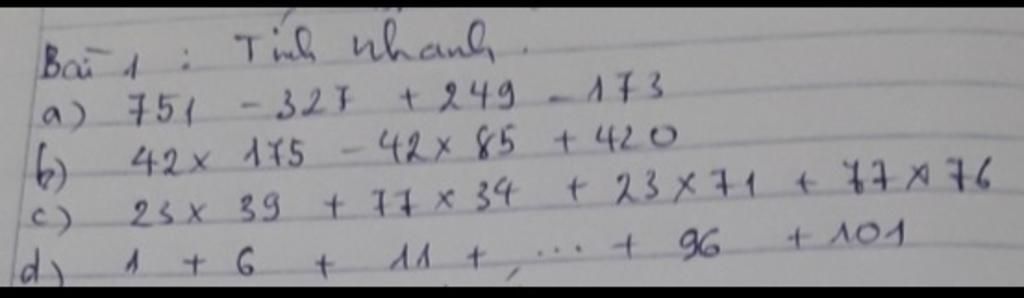 Bài 1 : Tính nhanh.
a) 751 - 327 + 249 - 173
b) 42 x 175 - 42 x 85 + 420
c) 23 x 39 + 77 x 34 + 23 x 71 + 77 x 76
d) 1 + 6 + 11 + ... + 96 + 101